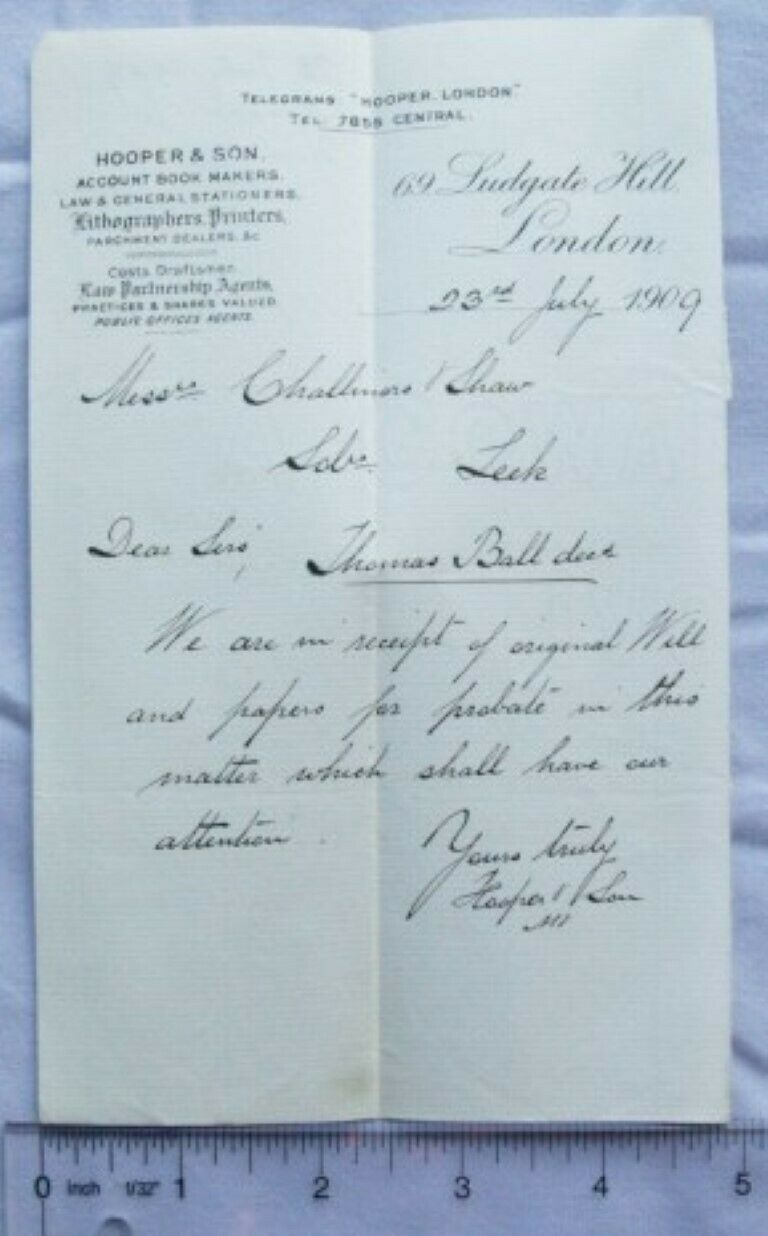 TELEGRAMS "HOOPER. LONDON"
TEL. 7855 CENTRAL.
HOOPER & SON,
ACCOUNT BOOK MAKERS,
LAW & GENERAL STATIONERS,
Lithographers, Printers,
PARCHMENT DEALERS, &c
Costs Draftsmen,
Law Partnership Agents,
PRACTICES & SHARES VALUED
PUBLIC OFFICES AGENTS.
69 Ludgate Hill
London,
23rd July 1909
Messrs Challinors & Shaw
Leek
Dear Sirs, Thomas Ball decd
We are in receipt of original Will
and papers for probate in this
matter which shall have our
attention.
Yours truly
Hooper & Son
0 Inch 1/32" 1 2 3 4 5